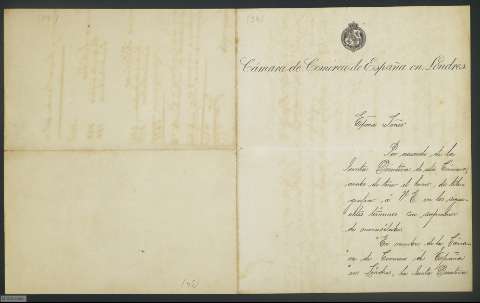 Cámara de Comercio de España en Londres
Excmo Señor
Por acuerdo de la
Junta Directiva de esta Cámara,
acabo de tener el honor de tele-
grafiar á V. E. en los sigui-
entes términos
"En nombre de la Cáma-
"ra de Comercio de España
"en Londres, la Junta Directiva